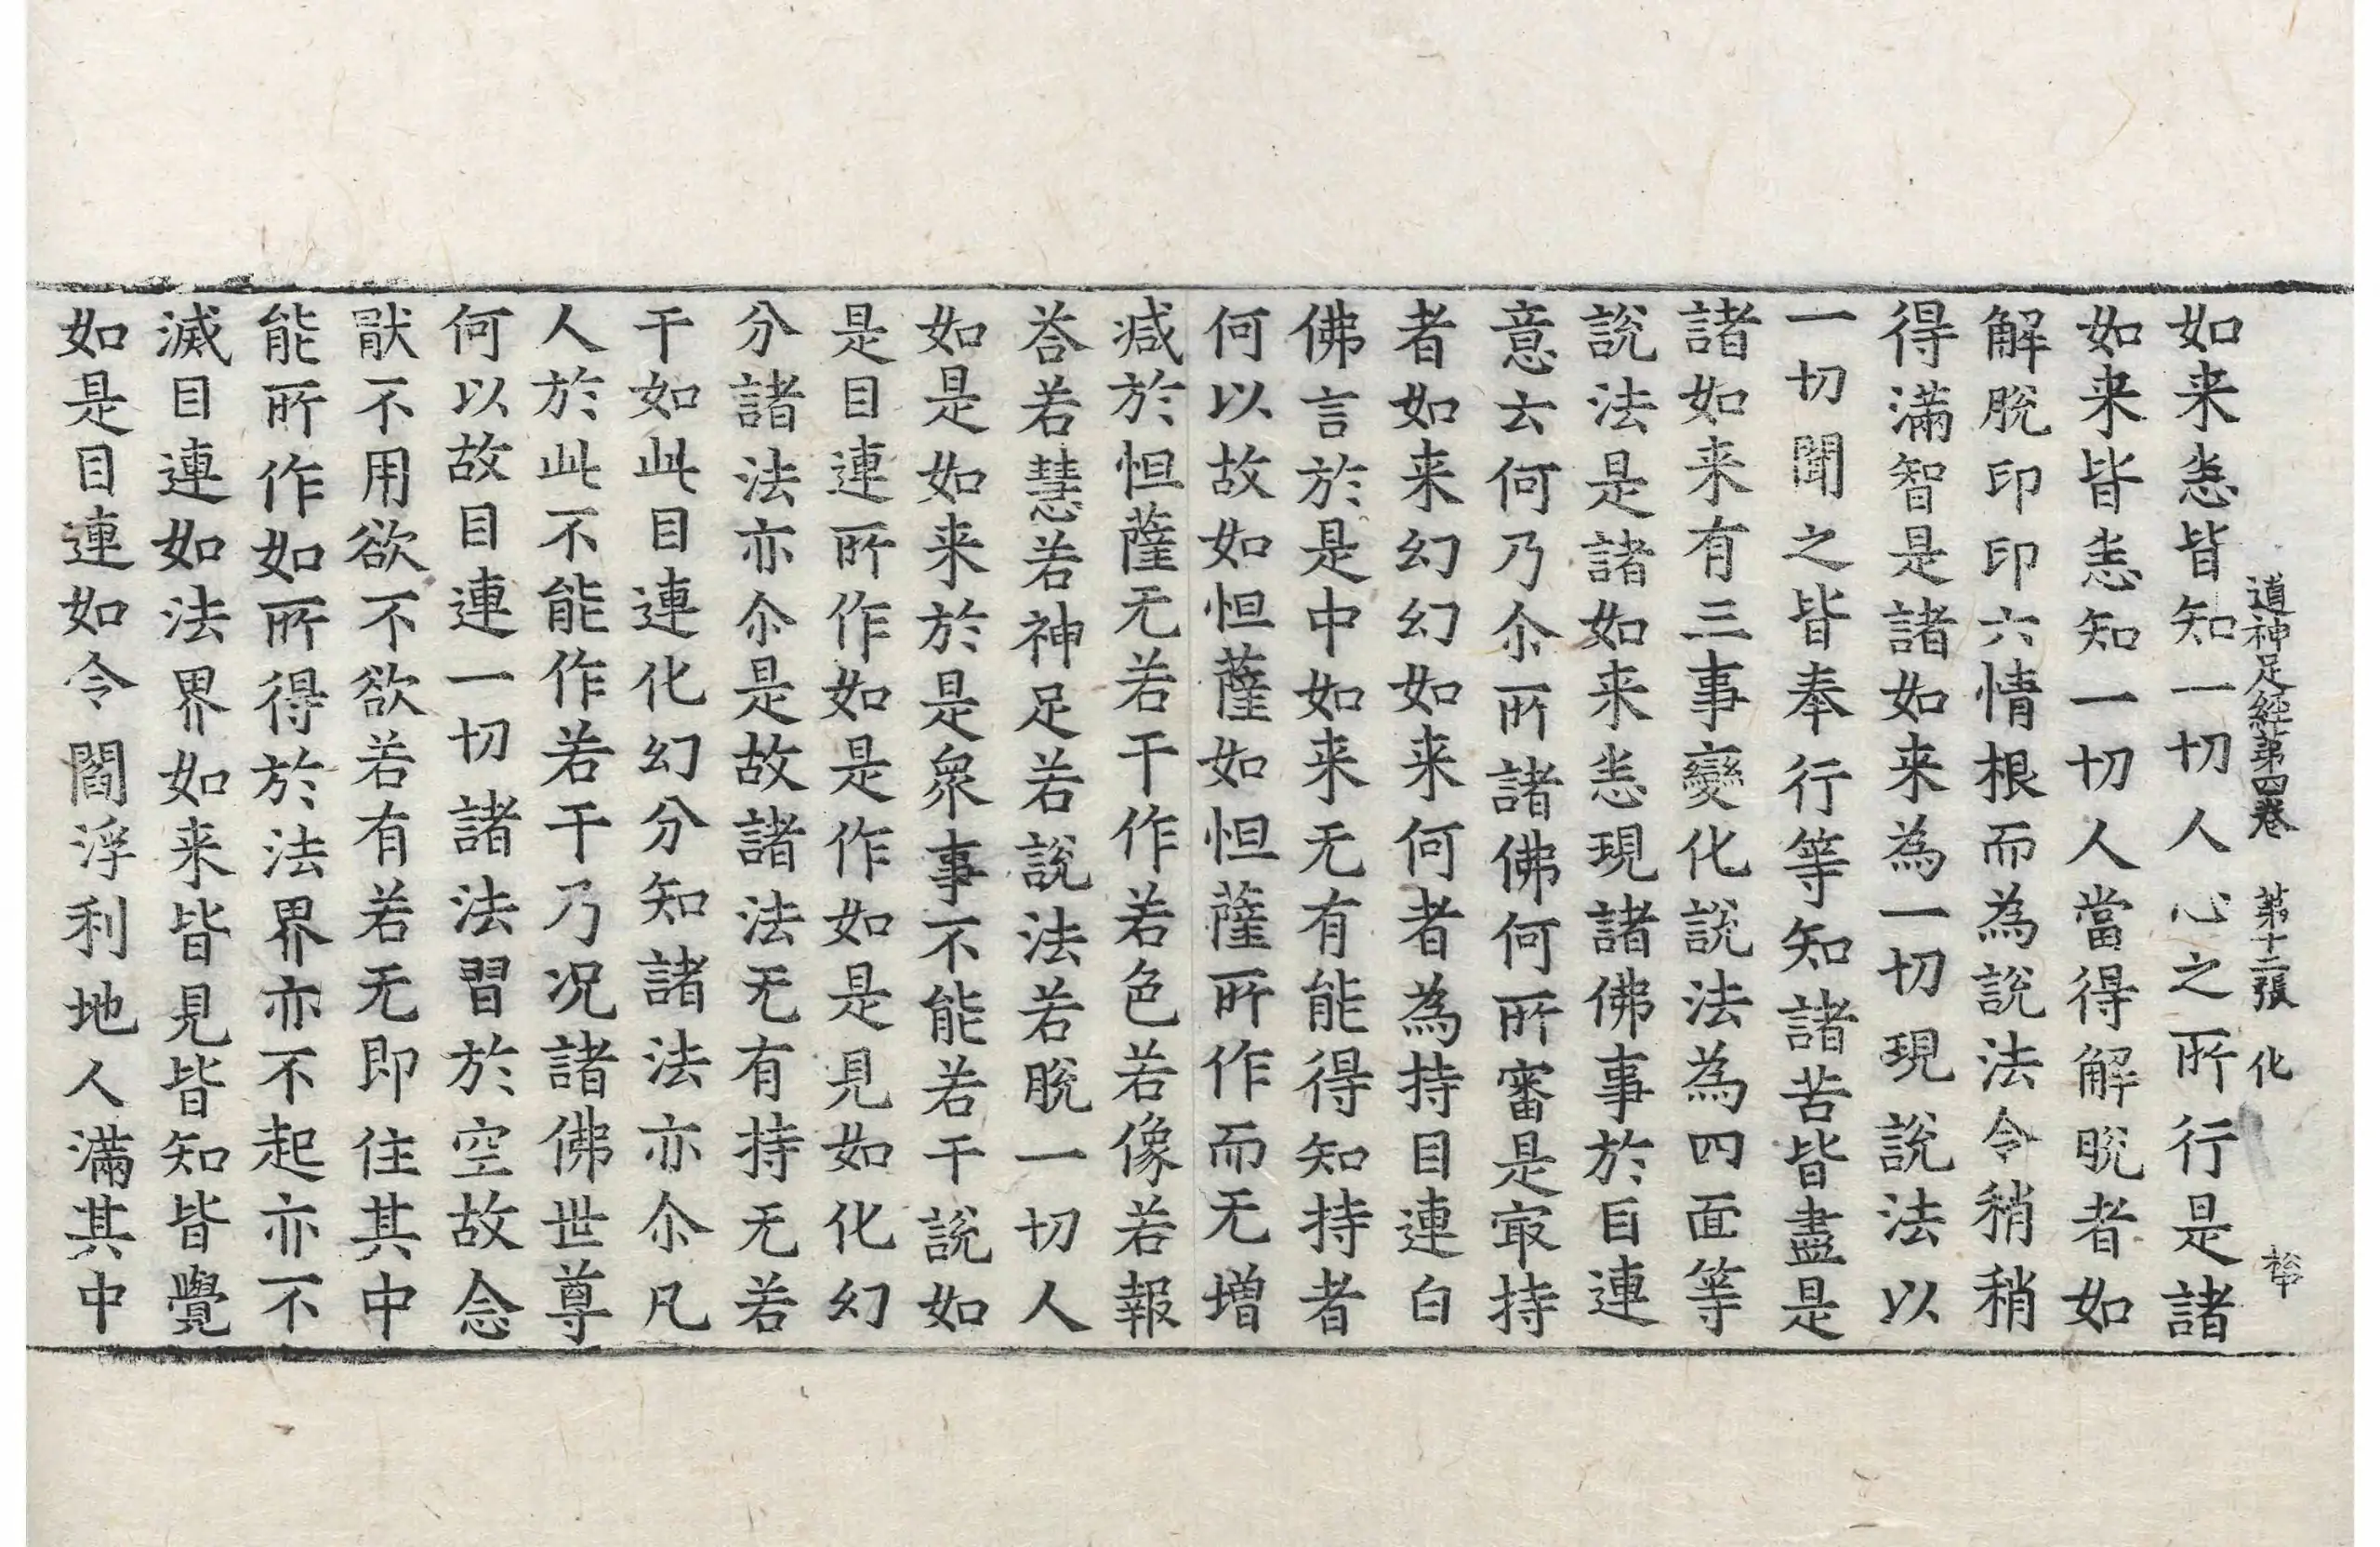 道神足經第四卷　第十二張　化
如来悉皆知一切人心之所行是諸
如来皆悉知一切人當得解脫者如
解脫印印六情根而為說法令稍稍
得滿智是諸如来為一切現說法以
一切聞之皆奉行等知諸苦皆盡是
諸如来有三事變化說法為四面等
說法是諸如来悉現諸佛事於目連
意云何乃尒所諸佛何所審是㝡持
者如来幻幻如来何者為持目連白
佛言於是中如来无有能得知持者
何以故如怛薩如怛薩所作而无增
减於怛薩无若干作若色若像若報
荅若慧若神足若說法若脫一切人
如是如来於是衆事不能若干說如
是目連所作如是作如是見如化幻
分諸法亦尒是故諸法无有持无若
干如此目連化幻分知諸法亦尒凡
人於此不能作若干乃况諸佛世尊
何以故目連一切諸法習於空故念
猒不用欲不欲若有若无即住其中
能所作如所得於法界亦不起亦不
滅目連如法界如来皆見皆知皆覺
如是目連如令閻浮利地人滿其中